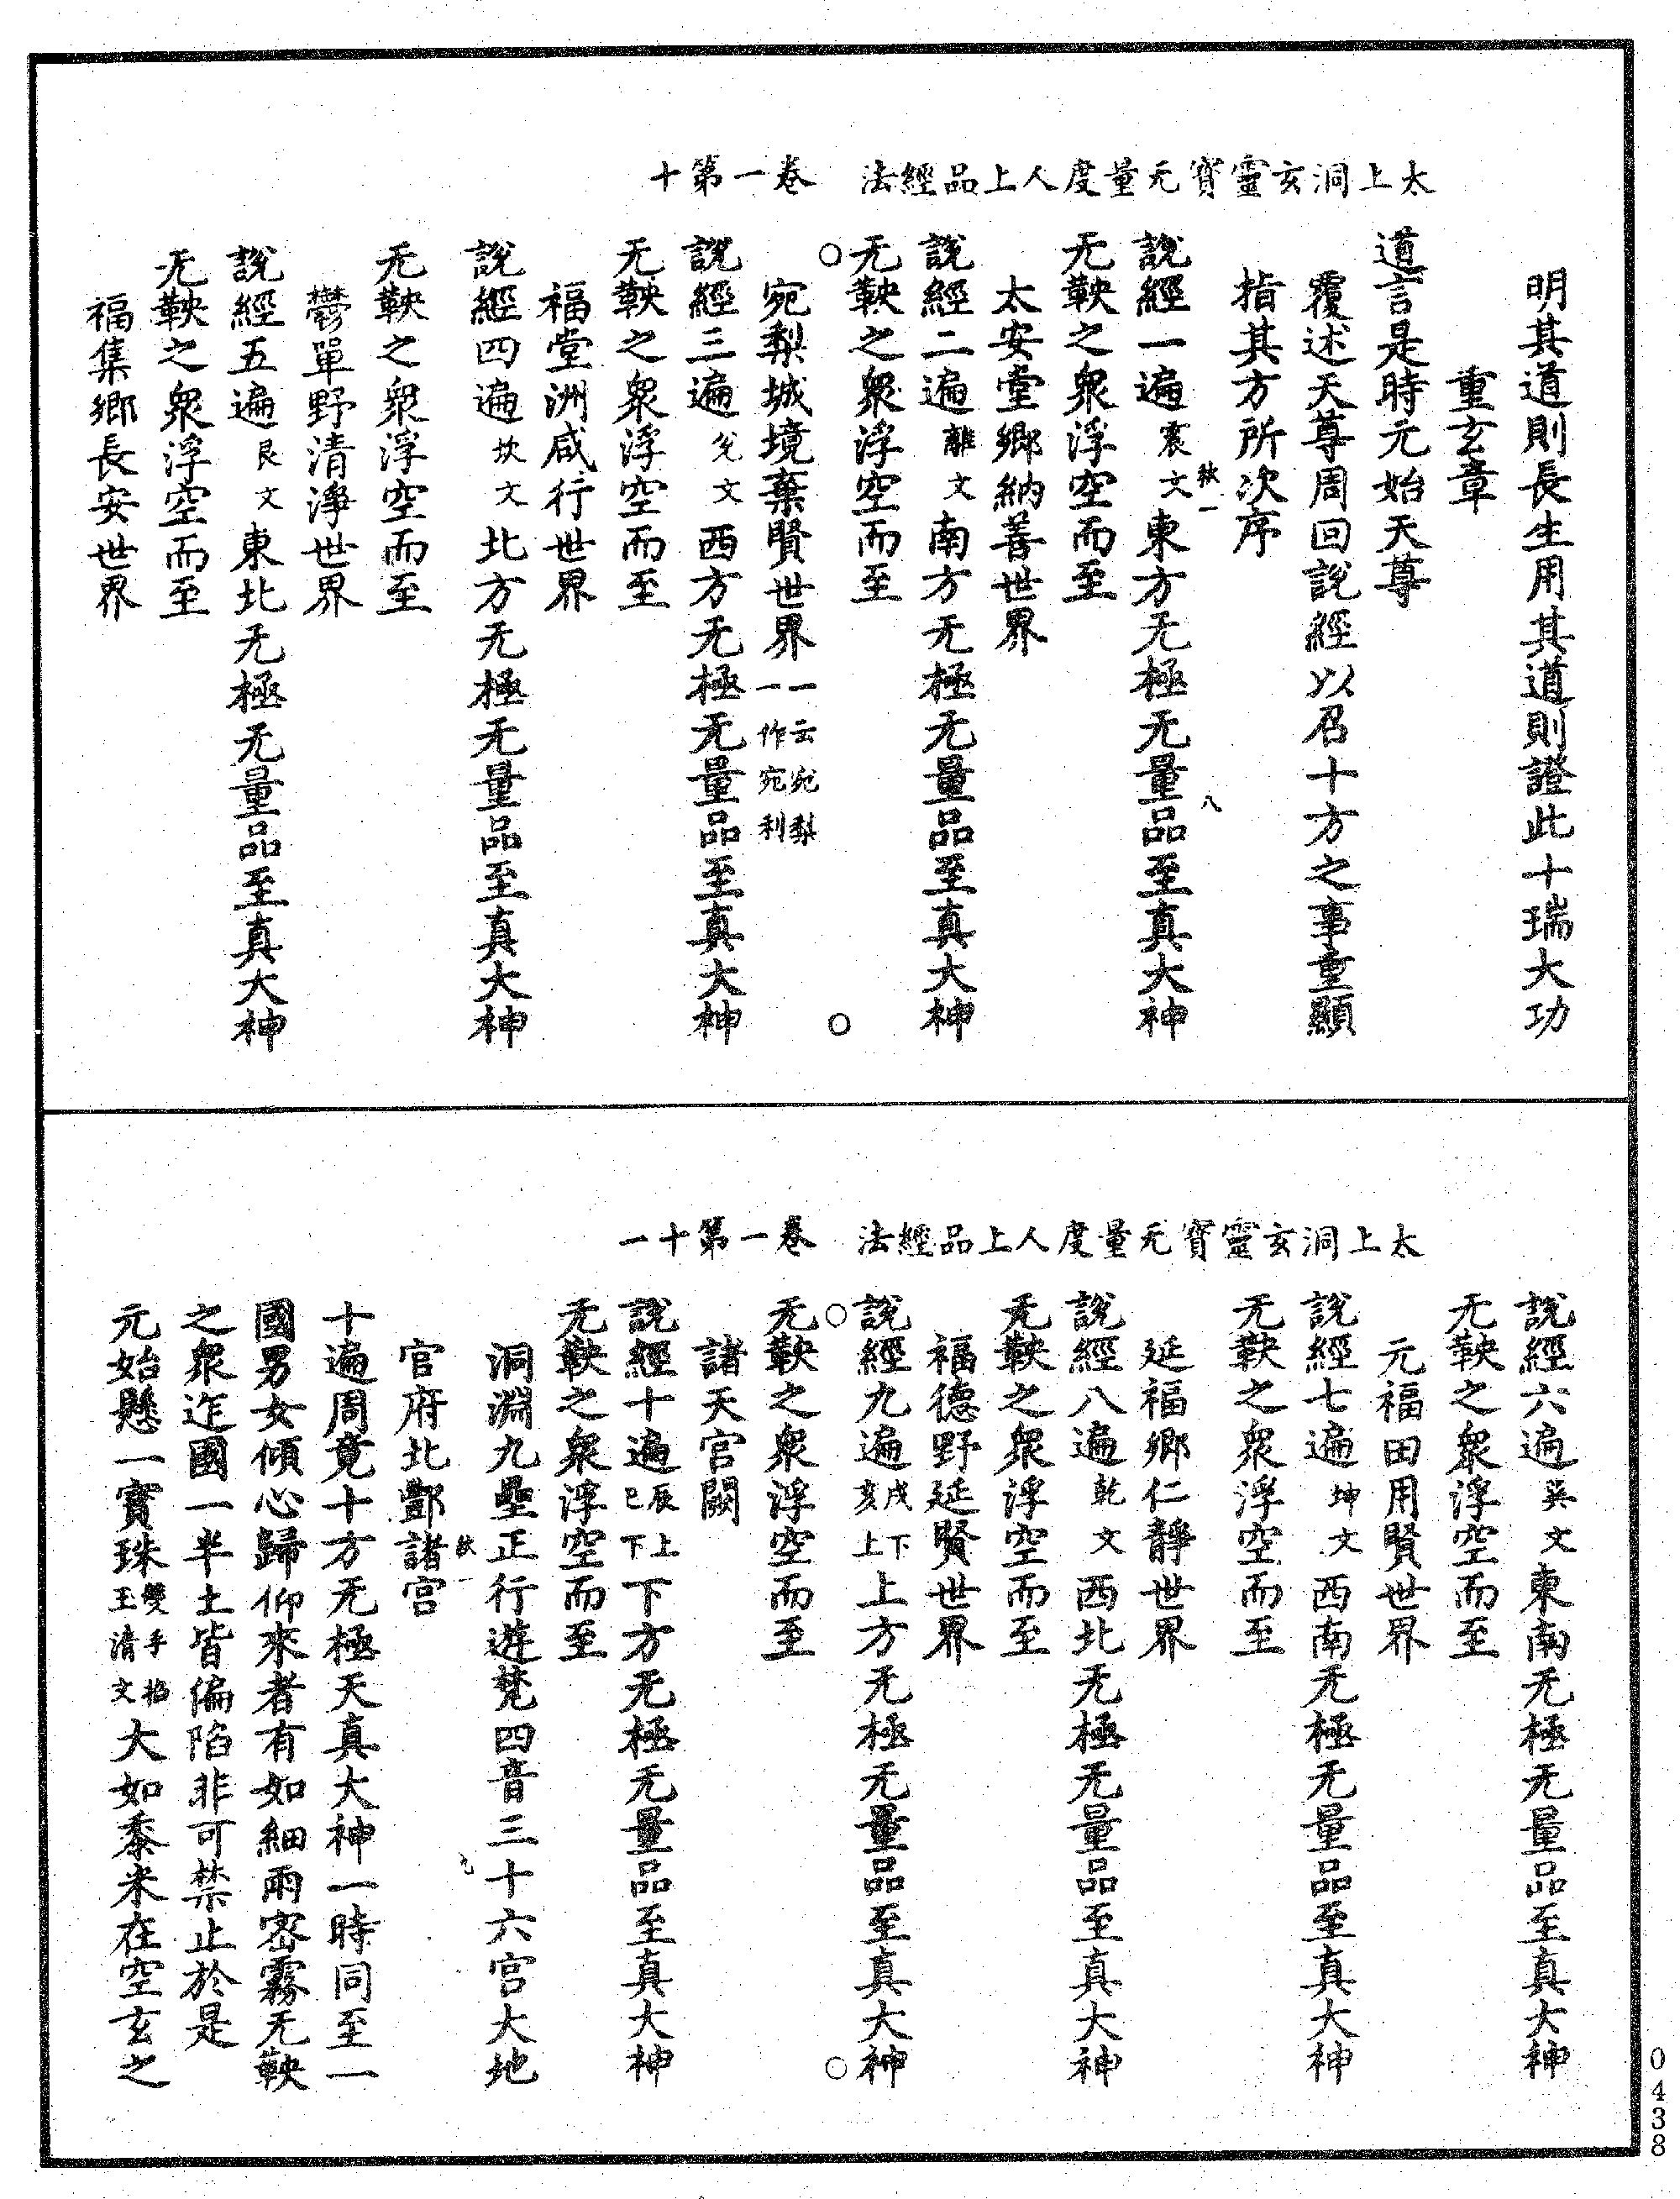 太上洞玄靈寶无量度人上品經法　卷一第十
明其道則長生用其道則證此十瑞大功
重玄章
道言是時元始天尊
覆述天尊周回說經以召十方之事重顯
指其方所次序
說經一遍震文東方无極无量品至真大神
无鞅之衆浮空而至
太安堂鄉納善世界
說經二遍離文南方无極无量品至真大神
无鞅之衆浮空而至
宛梨城境棄賢世界一云宛梨一作宛利
說經三遍兊文西方无極无量品至真大神
无鞅之衆浮空而至
福堂洲咸行世界
說經四遍坎文北方无極无量品至真大神
无鞅之衆浮空而至
鬱單野清淨世界
說經五遍艮文東北无極无量品至真大神
无鞅之衆浮空而至
福集鄉長安世界
太上洞玄靈寶无量度人上品經法　卷一第十一
說經六遍巽文東南无極无量品至真大神
无鞅之衆浮空而至
元福田用賢世界
說經七遍坤文西南无極无量品至真大神
无鞅之衆浮空而至
延福鄉仁靜世界
說經八遍乾文西北无極无量品至真大神
无鞅之衆浮空而至
福德野延賢世界
說經九遍戌下亥上上方无極无量品至真大神
无鞅之衆浮空而至
諸天官闕
說經十遍辰上巳下下方无極无量品至真大神
无鞅之衆浮空而至
洞淵九壘正行遊梵四音三十六宫大地
官府北酆諸宫
十遍周竟十方无極天真大神一時同至一
國男女傾心歸仰來者有如細雨密霧无鞅
之衆迮國一半土皆偏陷非可禁止於是
元始懸一寶珠雙手掐玉清文大如黍米在空玄之
0438